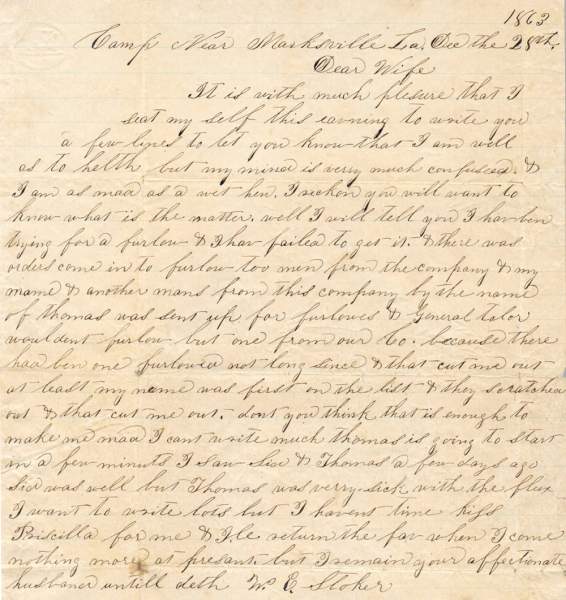 1863
Camp Near Marksville La. Dec the 28th.
Dear Wife
It is with much plesure that I
seat my self this eavning to write you
a few lines to let you know that I am well
as to helth but my mind is verry much confused. &
I am as mad as a wet hen. I reckon you will want to
know what is the matter. well I will tell you I hav ben
trying for a furlow & I hav failed to get it. & there was
orders come in to furlow too men from the company & my
name & another mans from this company by the name
of thomas was sent up for furloves & General talor
wouldent furlow but one from our Co. because there
had ben one furlowed not long since & that cut me out
at least my name was first on the list & they scratched
out & that cut me out. dont you think that is enough to
make me mad I cant write much thomas is going to start
in a few minuts I saw Sid & Thomas a few days ago
Sid was well but Thomas was verry sick with the flux
I want to write lots but I havent time kiss
Priscilla for me & Ile return the fav when I come
nothing more at present. but I remain your affectionate
husband untill deth W. E. Stoker